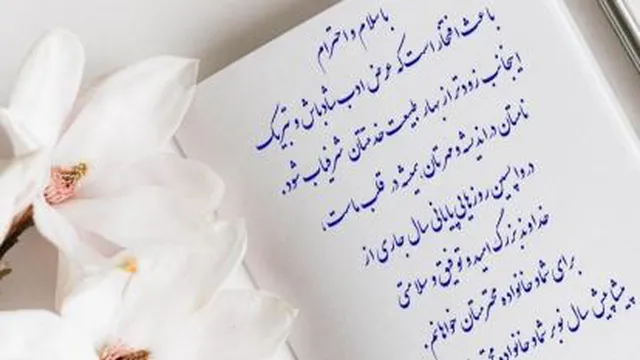 با سلام و احترام
باعث افتخار است که عرض ادب شادباش و تبریک
اینجانب زودتر از بهار طبیعت خدمتتان شرفیاب شود.
تاستان در اندیشه و مهرتان همیشه در قلب ماست،
در واپسین روزهایی پایانی سال جاری از
خداوند بزرگ امید و توفیق و سلامتی
برای شما و خانواده محترمتان خواهانم.
پیشاپیش سال نو بر شما و خانواده